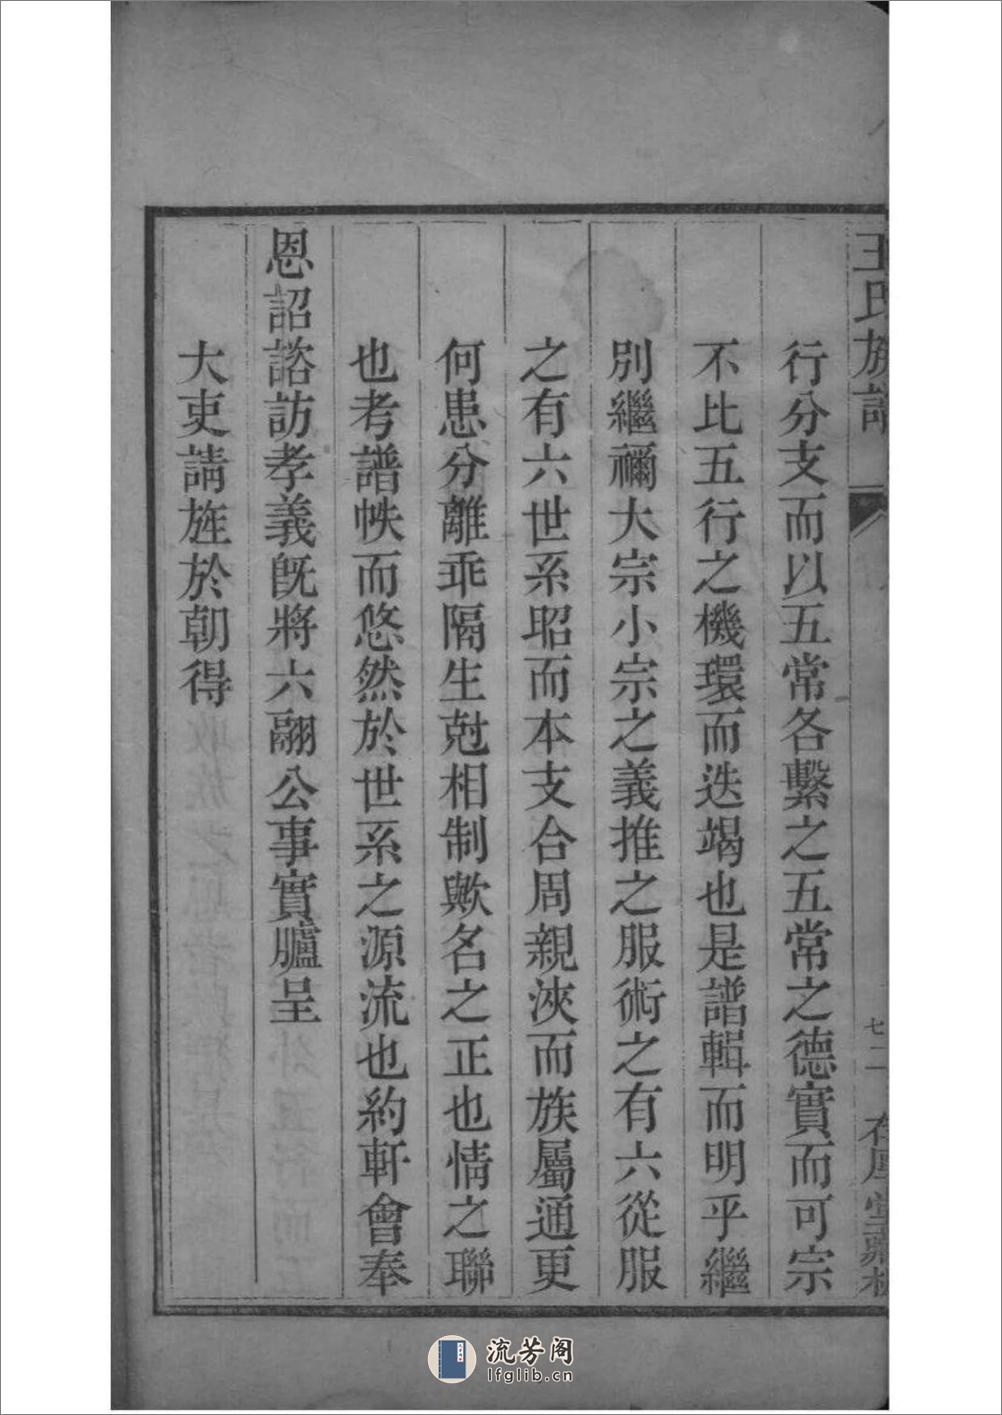 王氏族譜
七二
行分支而以五常各繫之五常之德實而可宗
不比五行之機環而迭竭也是譜輯而明乎繼
別繼禰大宗小宗之義推之服術之有六從服
之有六世系昭而本支合周親浹而族屬通更
何患分離乖隔生尅相制歟名之正也情之聯
也考譜帙而悠然於世系之源流也約軒會奉
恩詔諮訪孝義旣將六翮公事實臚呈
大吏請旌於朝得
流芳阁
lfglib.cn